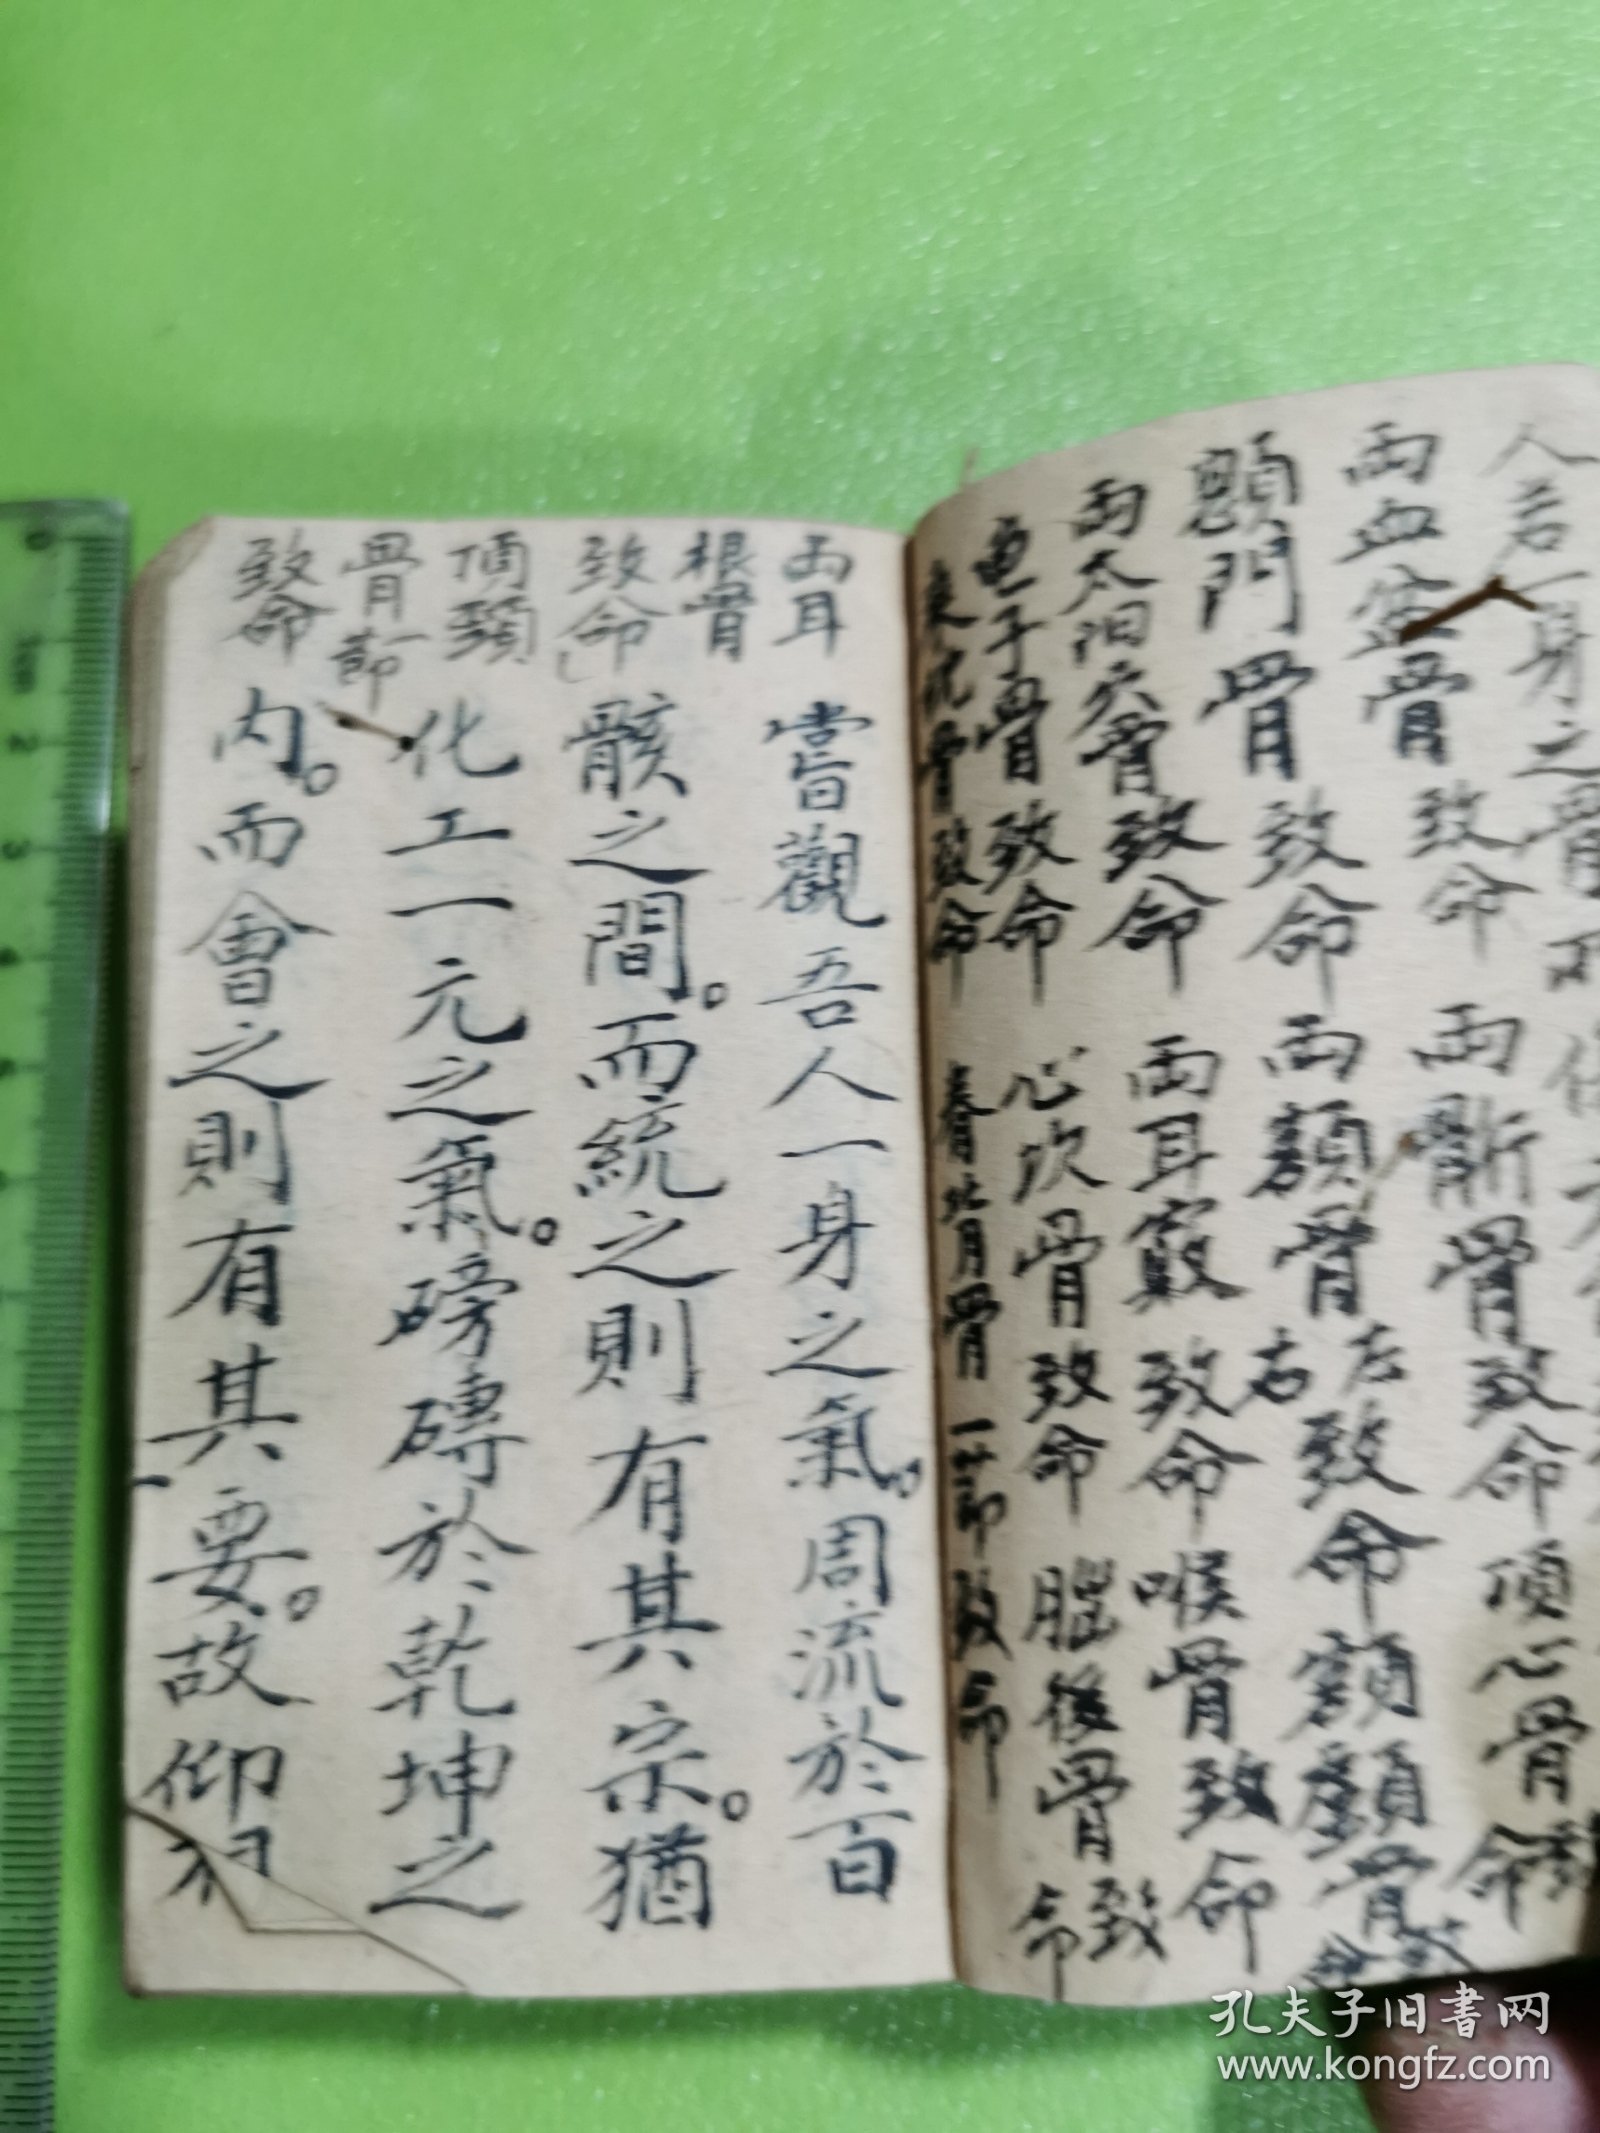 人若一身之骨
兩血盆骨致命 兩骱骨致命 頂心骨致命
顖門骨致命 兩額骨左右致命 額顱骨致命
兩太阳穴骨致命 兩耳竅致命 喉骨致命
龟子骨致命 心坎骨致命 腦後骨致命
乘枕骨致命 脊背骨一节致命
兩耳
根骨
致命
頂頸
骨一節
致命
嘗觀吾人一身之氣。周流於百
骸之間。而統之則有其宗。猶
化工一元之氣。磅礡於乾坤之
内。而會之則有其要。故仰
孔夫子旧書网
www.kongfz.com